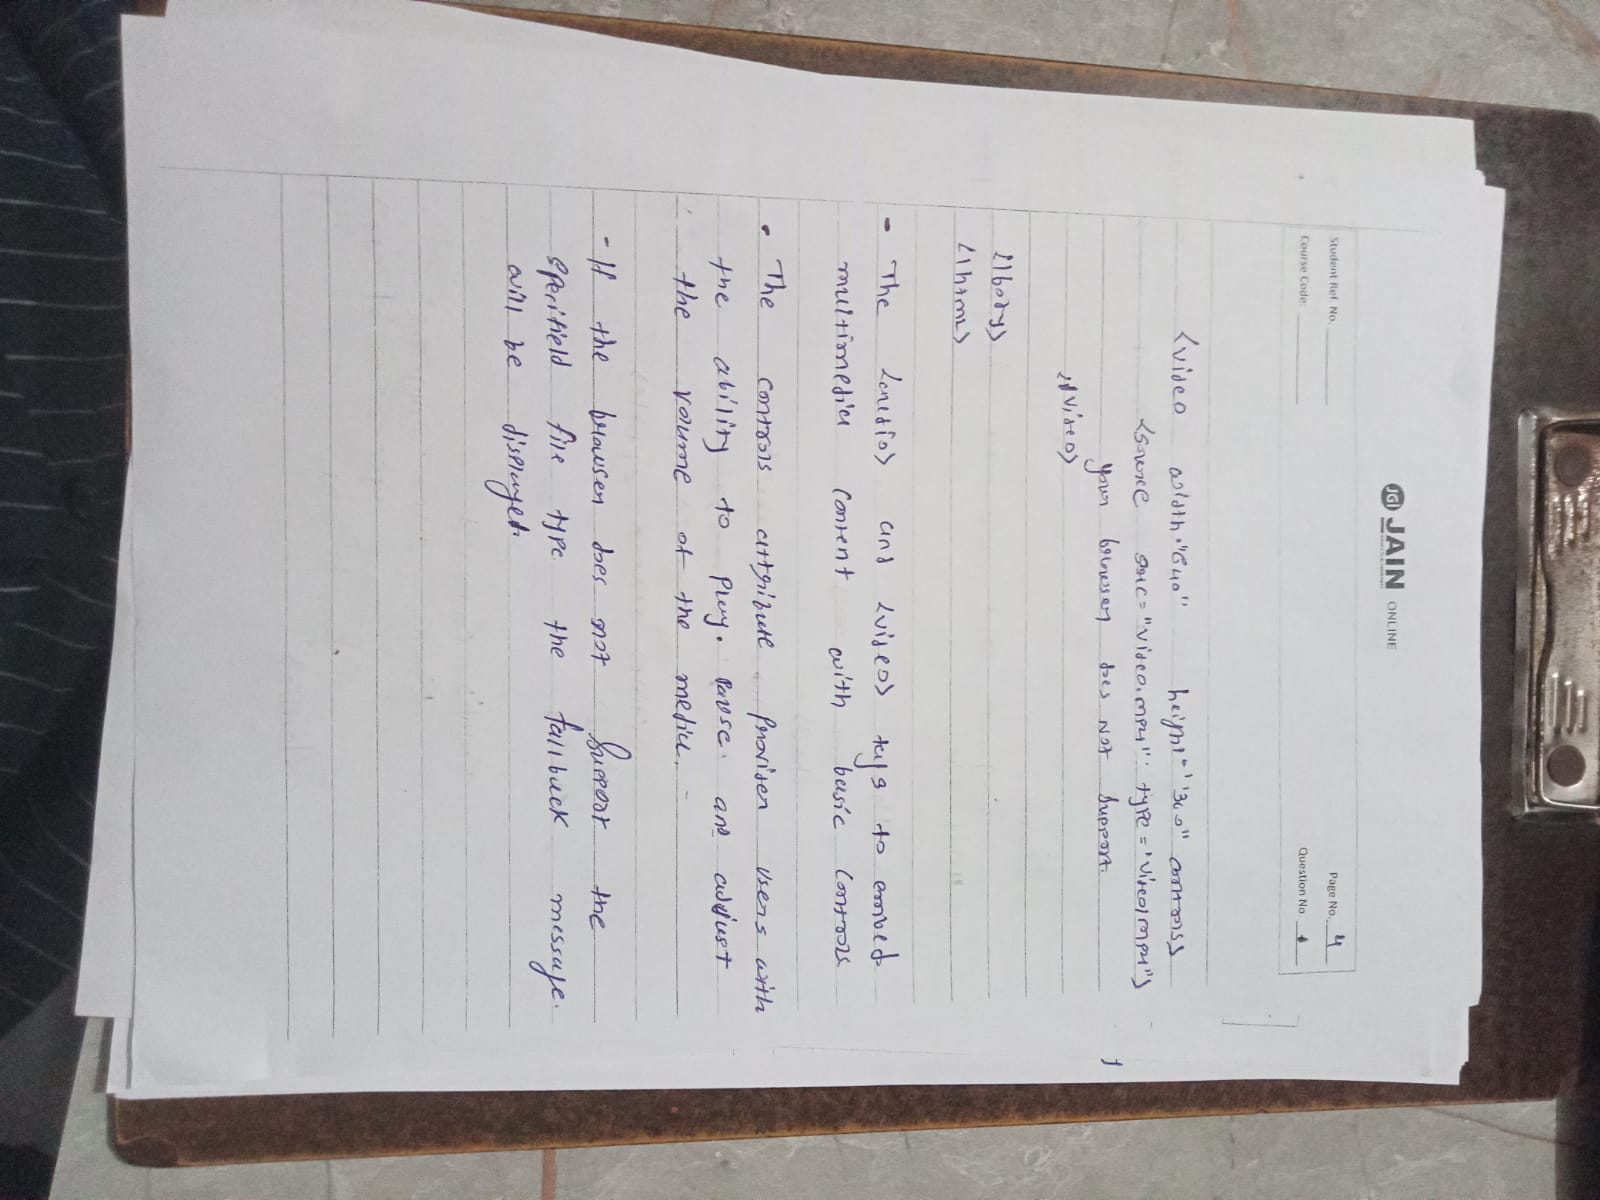 JGI JAIN ONLINE
Student Ref. No.
Page No. 4
Course Code
Question No. 1
<video width="640" height="360" controls>
<source src="video.mp4" type="video/mp4">
your browser does not support.
</video>
</body>
</html>
- The <audio> and <video> tags to embed
multimedia content with basic controls
• The controls attribute provides users with
the ability to play. pause. and adjust
the volume of the media.
- If the browser does not support the
specifield file type the fallback message.
will be displayed.